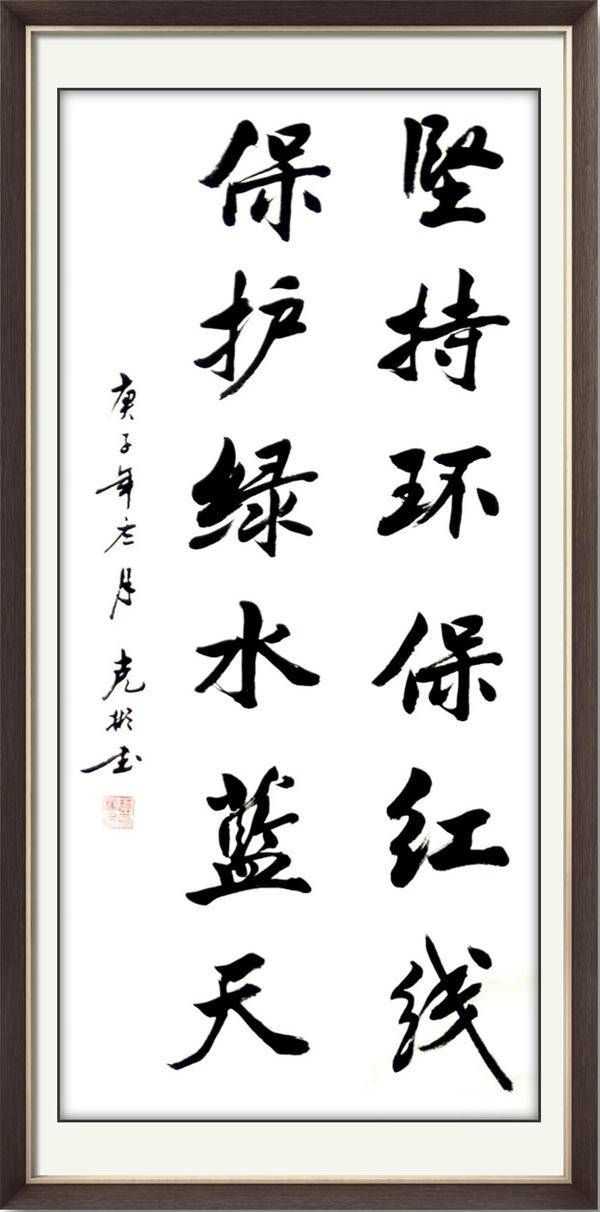 坚持环保红线
保护绿水蓝天
庚子年叁月 克彬书